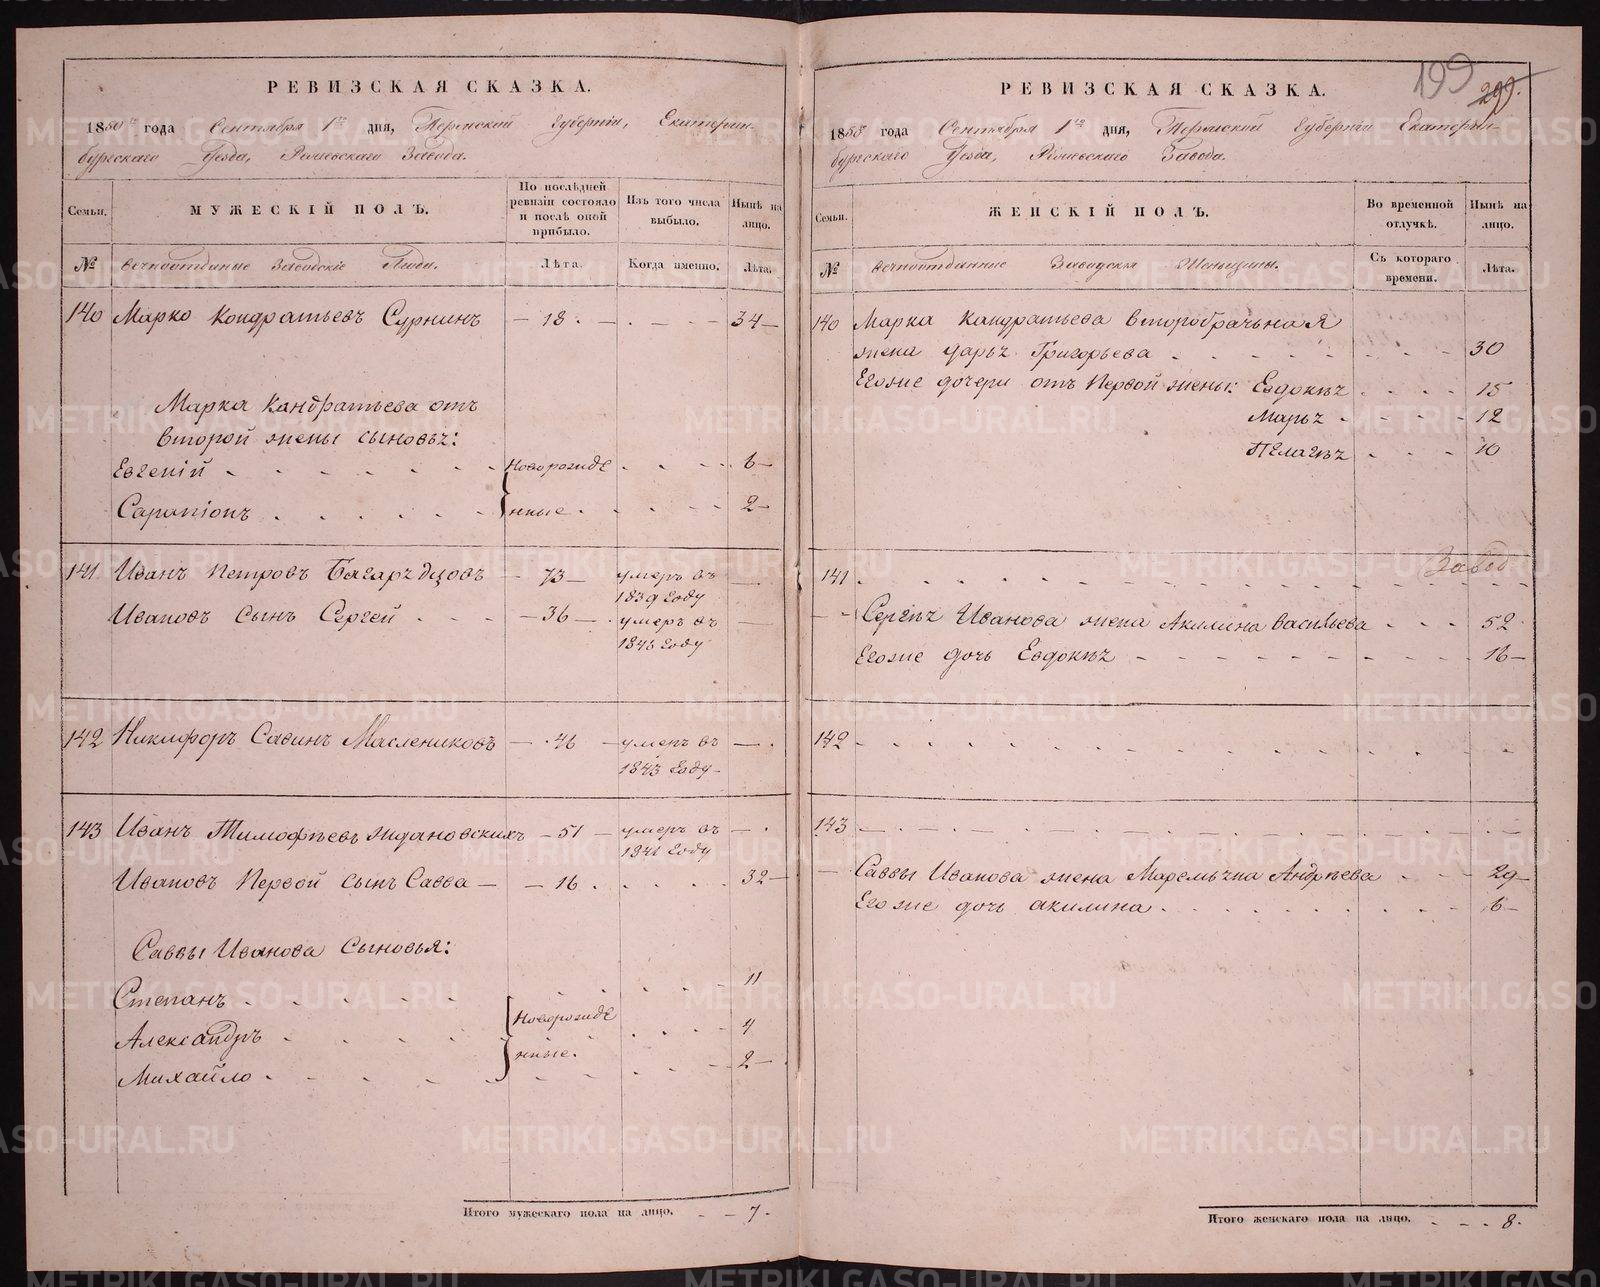 РЕВИЗСКАЯ СКАЗКА.
1850 года Сентября 1го дня, Пермской Губернiи, Екатерин-
бургскаго Уезда, Завода.
Семьи.
МУЖЕСКIЙ ПОЛЪ.
По послѣдней ревизiи состояло и послѣ оной прибыло.
Изъ того числа выбыло.
Нынѣ на лицо.
№
Вечноотданные Заводскiе Люди.
Лѣта.
Когда именно.
Лѣта.
140 Марко Кондратьевъ Сурнинъ — 18 . — . — . — 34 —
Марка Кандратьева отъ
второй жены сыновья:
Евгенiй . . . . . . Новорожде . . . 6 —
Сарапiонъ . . . . . . нные . . . . 2 —
141 Иванъ Петровъ — 73 — умеръ въ —
1839 Году
Ивановъ сынъ Сергей . . . — 36 — умеръ въ —
Году
142 Никифоръ Савинъ Маслениковъ — 46 — умеръ въ — .
1843 Году —
143 Иванъ Тимофѣевъ Ждановскихъ — 51 — умеръ въ — .
1841 Году
Ивановъ Первой сынъ Савва — — 16 . . . . . 32 —
Саввы Иванова Сыновья:
Степанъ . . . . . . . . . 11
Александръ . . . . Новорожде . . . . 4
Михайло . . . . . нные . . . . . 2 —
Итого мужескаго пола на лицо. — — 7 .
199
299.
РЕВИЗСКАЯ СКАЗКА.
1850 года Сентября 1го дня, Пермской Губернiи Екатерин-
бургскаго Уезда, Завода.
Семьи.
ЖЕНСКIЙ ПОЛЪ.
Во временной отлучкѣ.
Нынѣ на лицо.
№
Вечноотданные Заводскiя Женщины.
Съ котораго времени.
Лѣта.
140 Марка Кандратьева второбрачьная
жена Дарья Григорьева . . . . . . . . 30
Егоже дочери отъ Первой жены: Евдокья . . . . 15
Марья . . . . 12
Пелагья . . . 10
Завод
141 . . . . . . . . . . . . . .
— Сергея Иванова жена Акилина Васильева . . . 52
Егоже дочь Евдокья . . . . . . . . . 16 —
142 . . . . . . . . . . . . . .
143 . . . . . . . . . . . . . .
— Саввы Иванова жена Маремьяна Андрѣева . . . 29 —
Егоже дочь Акилина . . . . . . . . . 6 —
Итого женскаго пола на лицо. . — — 8 .
METRIKI.GASO-URAL.RU